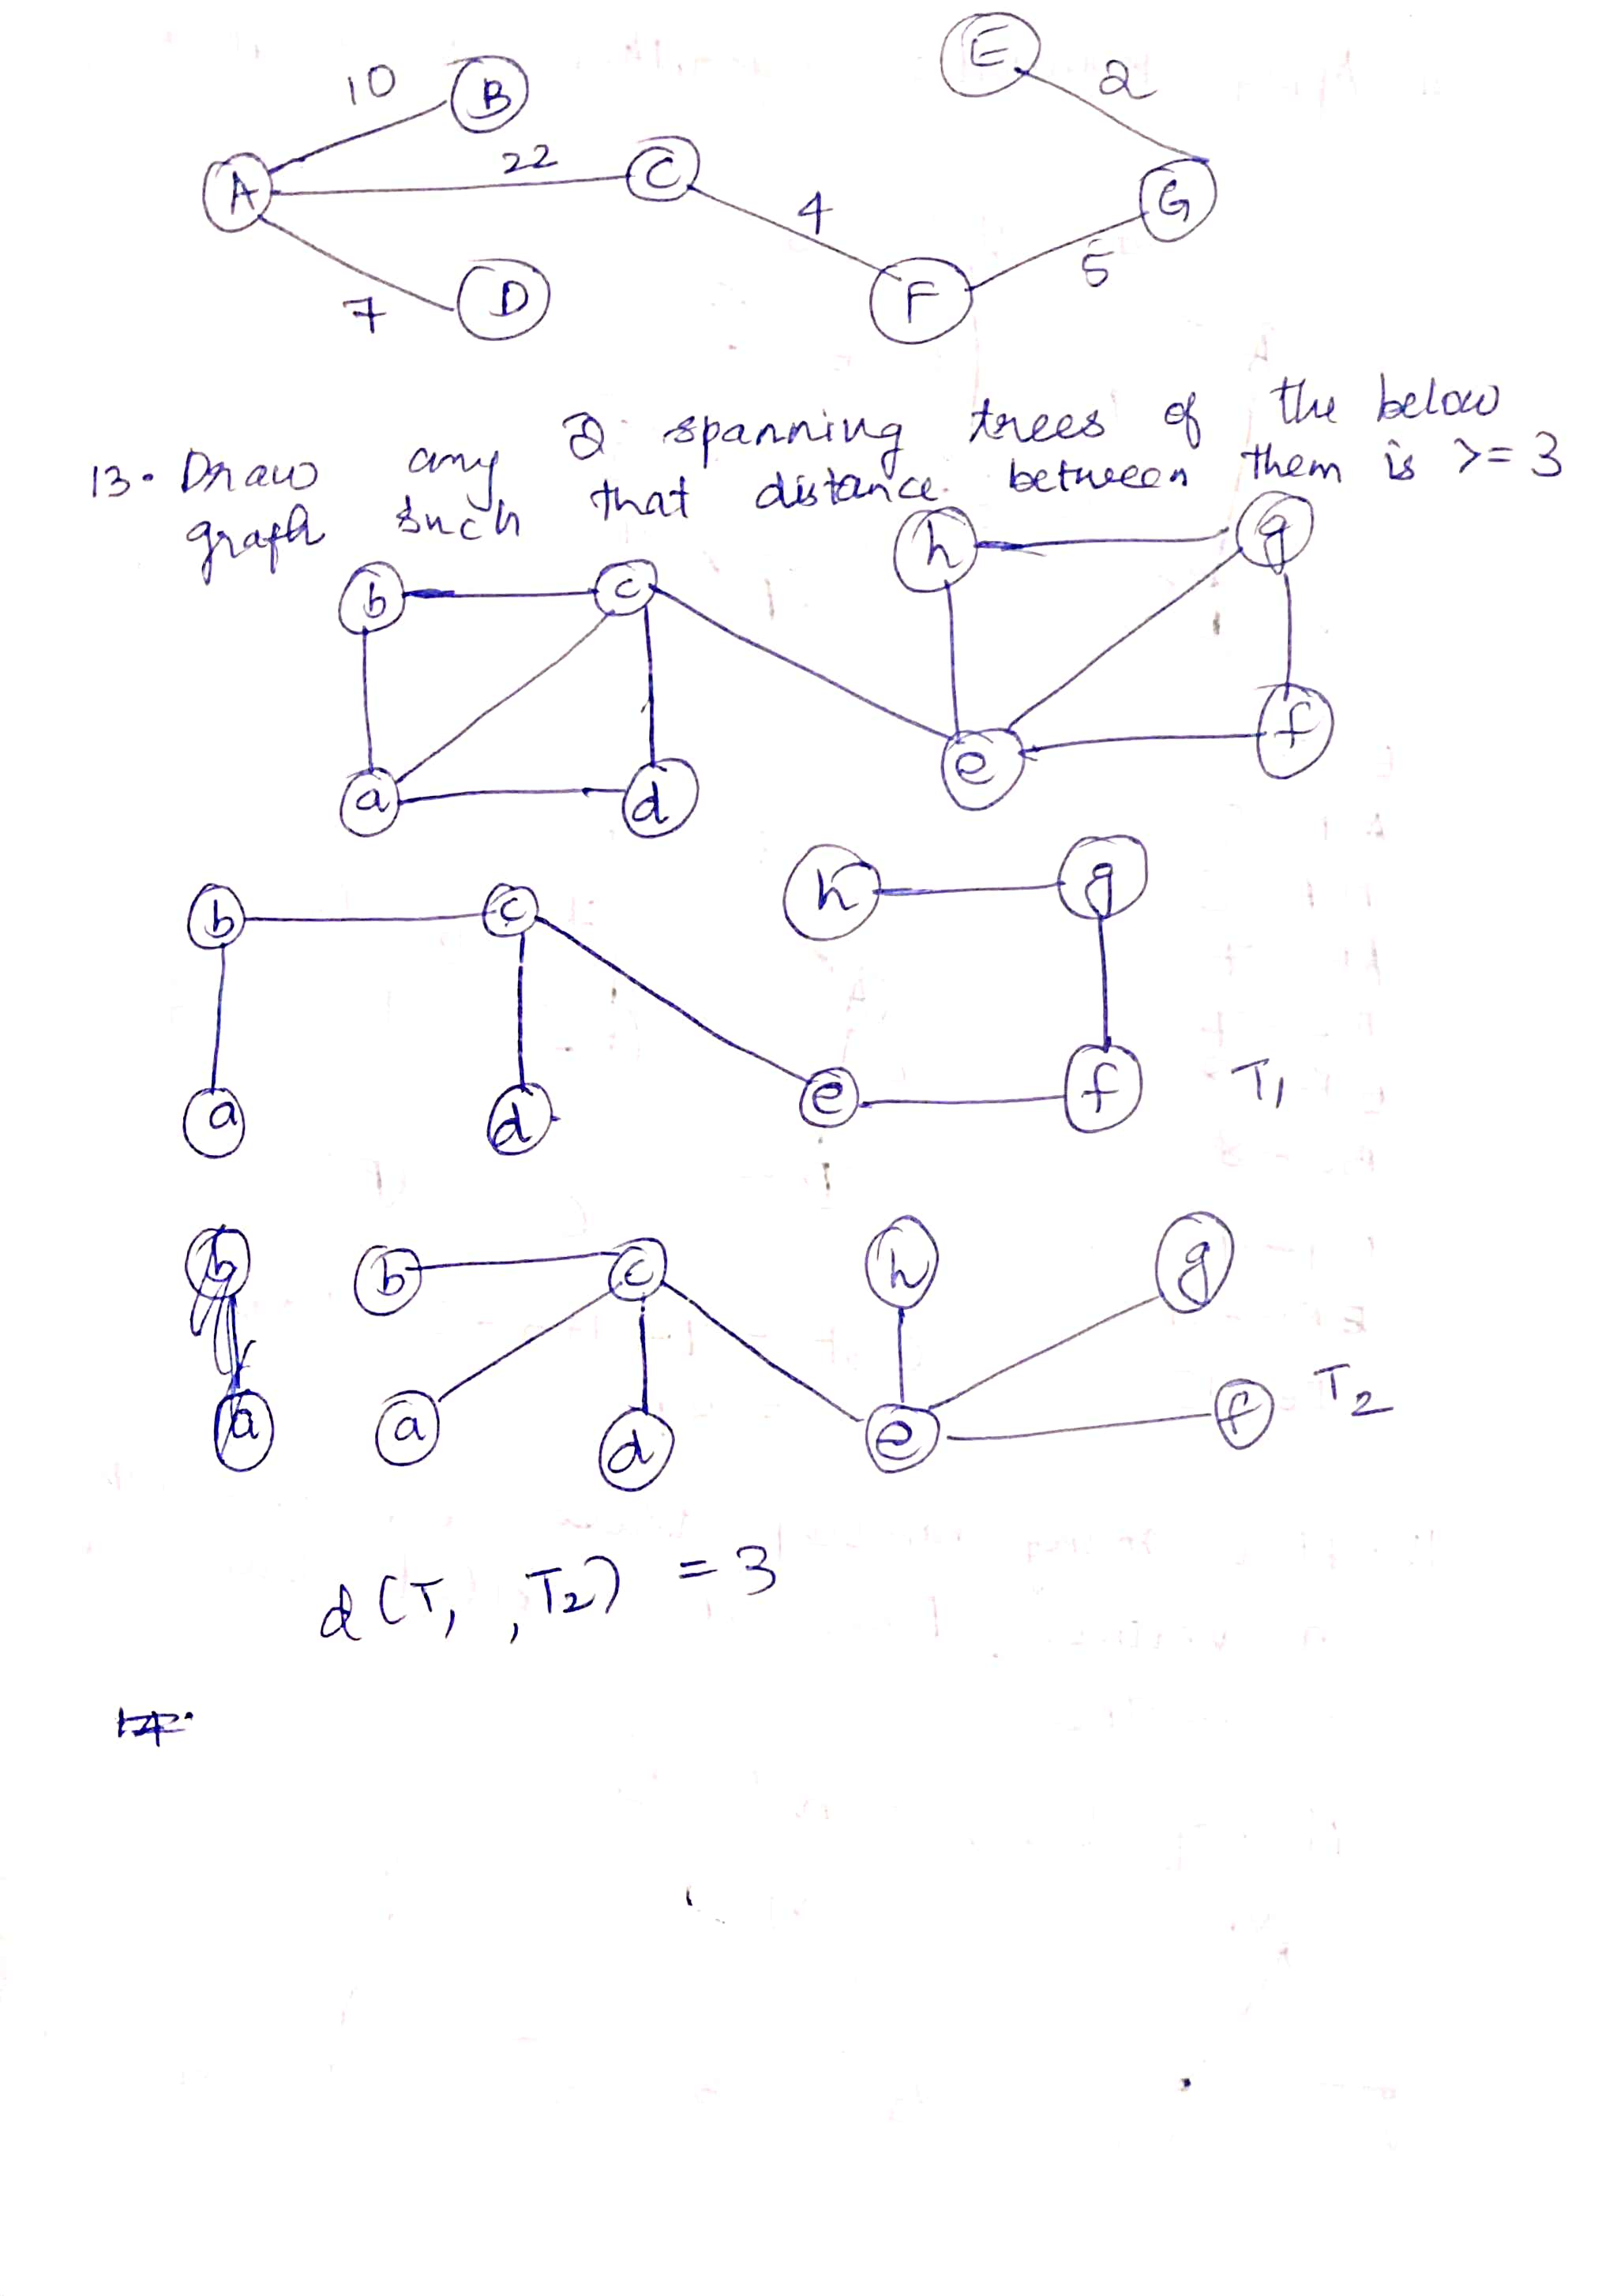 10 B E 2
A 22 C
4 G
7 D F 5
13. Draw any 2 spanning trees of the below
graph such that distance between them is >= 3
b c h g
a d e f
b c h g
a d e f T1
b b c h g
a a d e f T2
d(T1, T2) = 3
14.